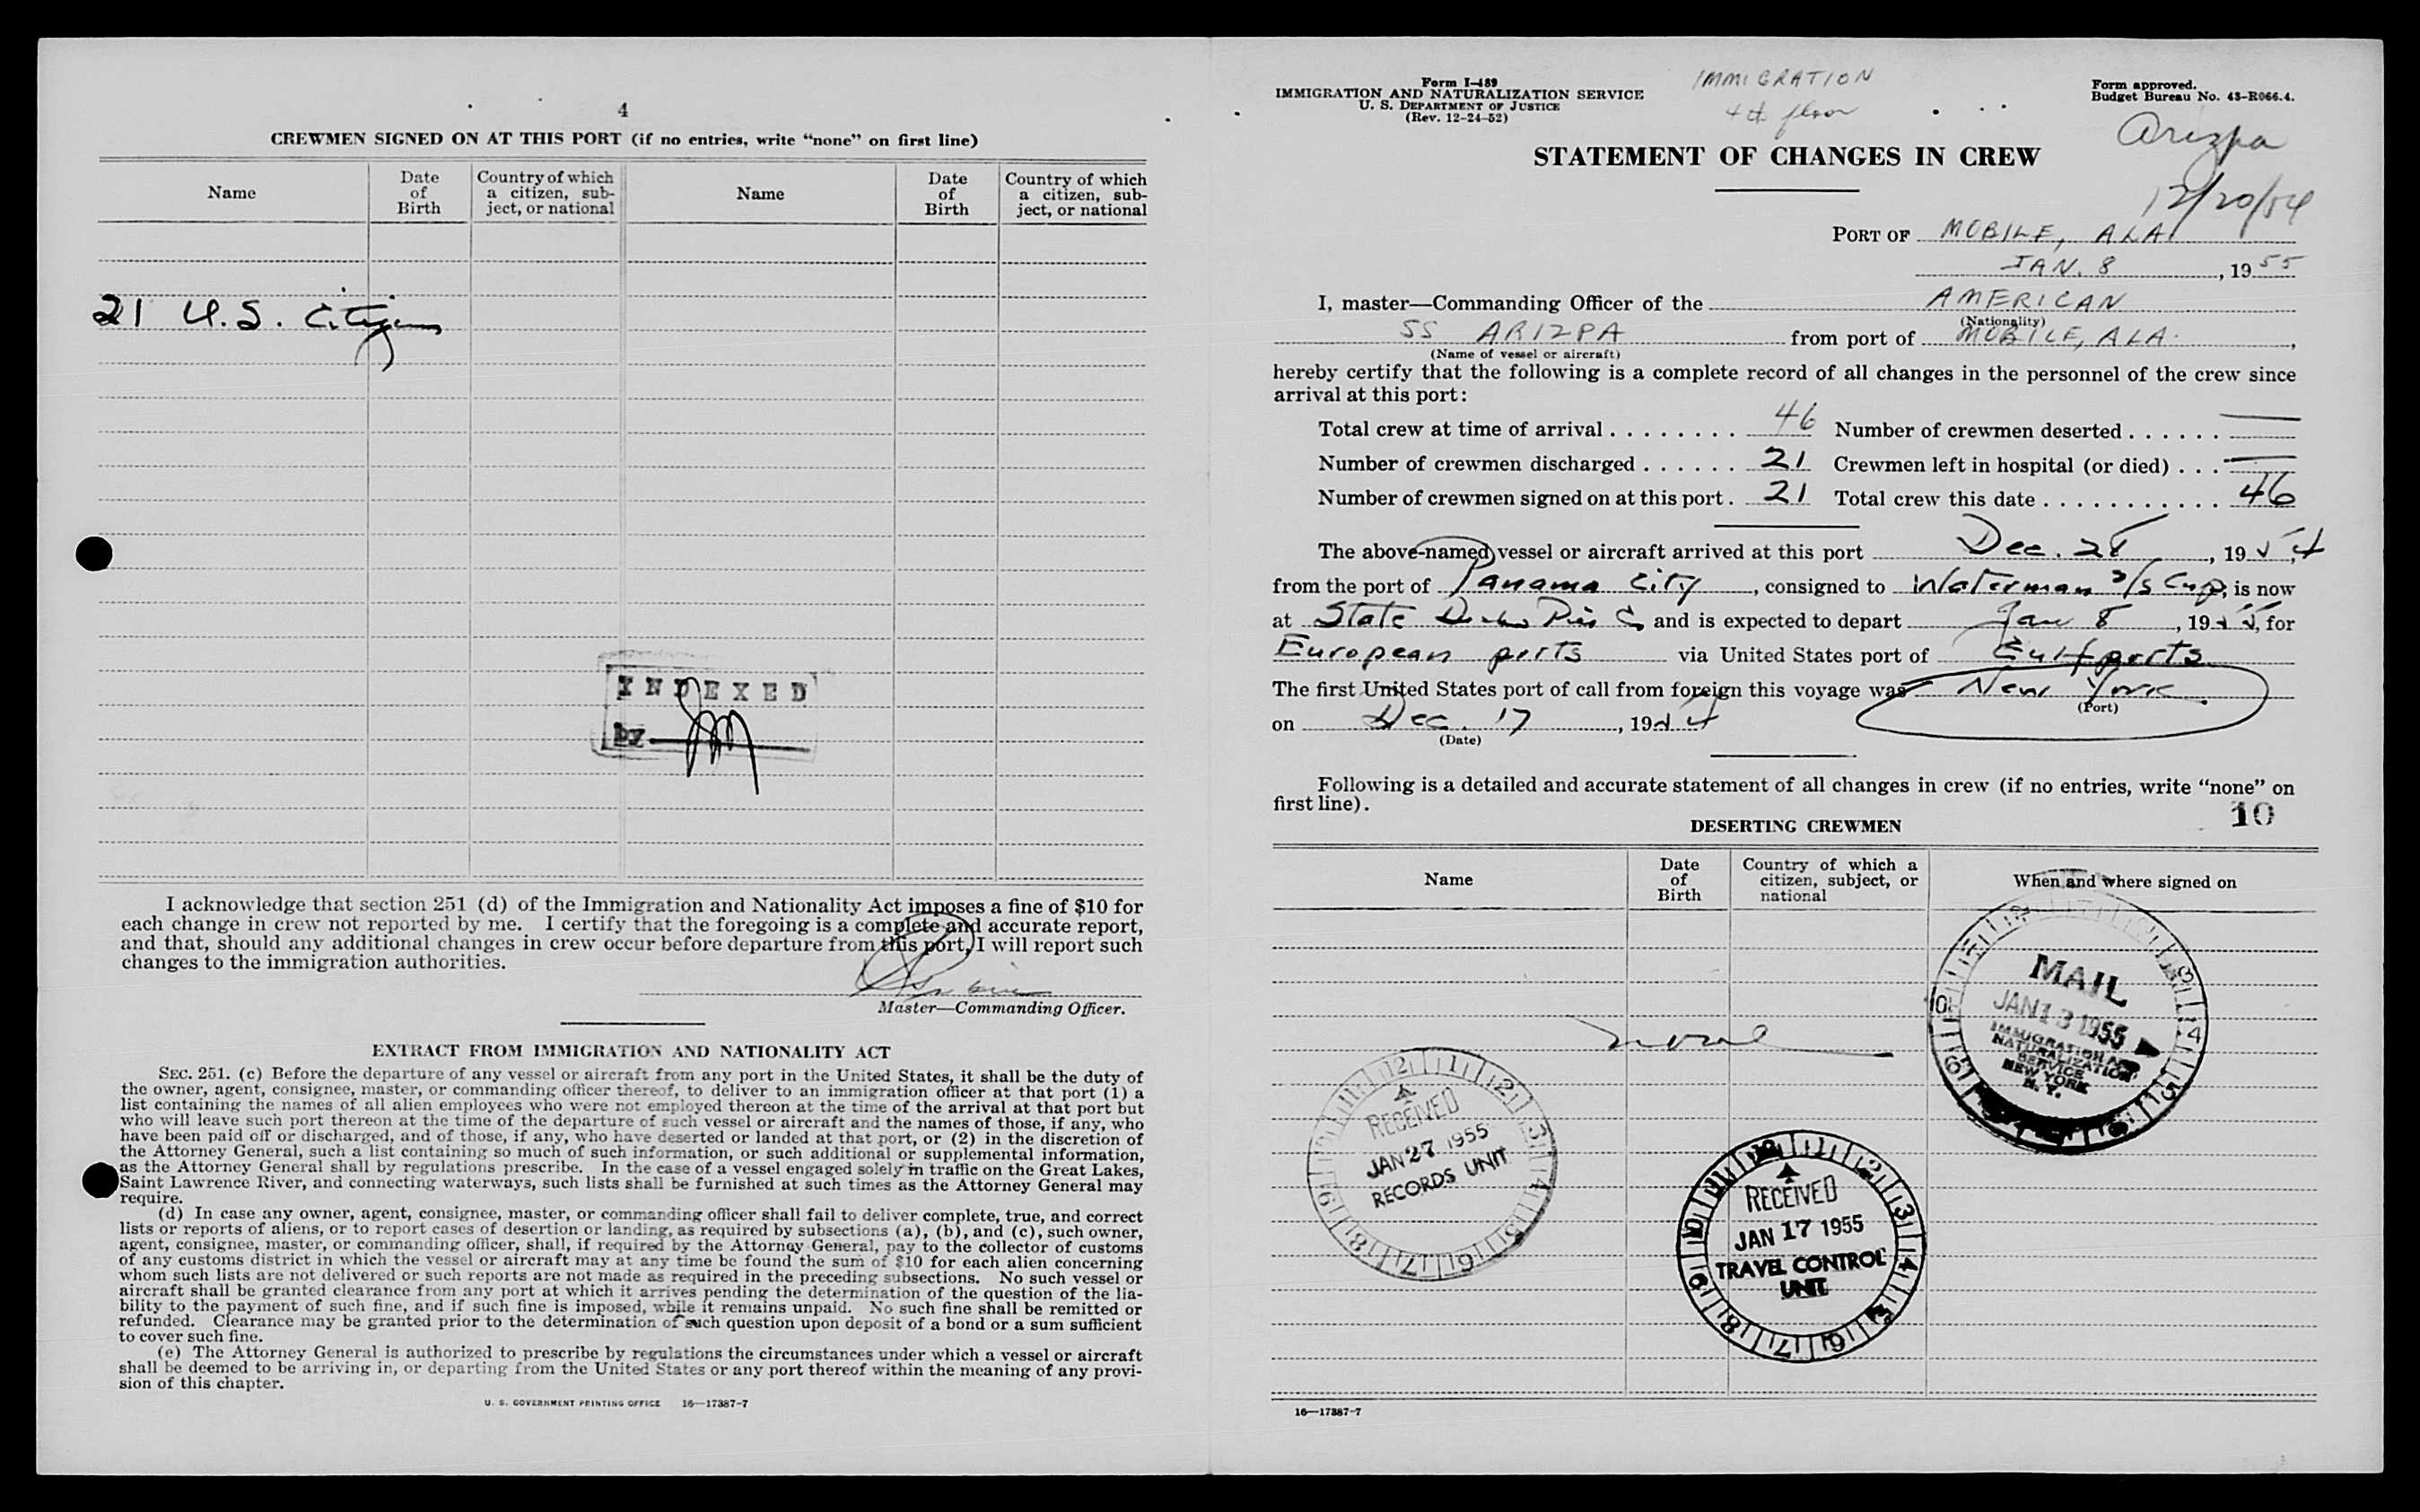 4
CREWMEN SIGNED ON AT THIS PORT (if no entries, write “none” on first line)
Name
Date of Birth
Country of which a citizen, subject, or national
Name
Date of Birth
Country of which a citizen, sub-ject, or national
21 U.S. Citizens
INDEXED
by
I acknowledge that section 251 (d) of the Immigration and Nationality Act imposes a fine of $10 for
each change in crew not reported by me. I certify that the foregoing is a complete and accurate report,
and that, should any additional changes in crew occur before departure from this port, I will report such
changes to the immigration authorities.
Master—Commanding Officer.
EXTRACT FROM IMMIGRATION AND NATIONALITY ACT
SEC. 251. (c) Before the departure of any vessel or aircraft from any port in the United States, it shall be the duty of
the owner, agent, consignee, master, or commanding officer thereof, to deliver to an immigration officer at that port (1) a
list containing the names of all alien employees who were not employed thereon at the time of the arrival at that port but
who will leave such port thereon at the time of the departure of such vessel or aircraft and the names of those, if any, who
have been paid off or discharged, and of those, if any, who have deserted or landed at that port, or (2) in the discretion of
the Attorney General, such a list containing so much of such information, or such additional or supplemental information,
as the Attorney General shall by regulations prescribe. In the case of a vessel engaged solely in traffic on the Great Lakes,
Saint Lawrence River, and connecting waterways, such lists shall be furnished at such times as the Attorney General may
require.
(d) In case any owner, agent, consignee, master, or commanding officer shall fail to deliver complete, true, and correct
lists or reports of aliens, or to report cases of desertion or landing, as required by subsections (a), (b), and (c), such owner,
agent, consignee, master, or commanding officer, shall, if required by the Attorney General, pay to the collector of customs
of any customs district in which the vessel or aircraft may at any time be found the sum of $10 for each alien concerning
whom such lists are not delivered or such reports are not made as required in the preceding subsections. No such vessel or
aircraft shall be granted clearance from any port at which it arrives pending the determination of the question of the lia-
bility to the payment of such fine, and if such fine is imposed, while it remains unpaid. No such fine shall be remitted or
refunded. Clearance may be granted prior to the determination of such question upon deposit of a bond or a sum sufficient
to cover such fine.
(e) The Attorney General is authorized to prescribe by regulations the circumstances under which a vessel or aircraft
shall be deemed to be arriving in, or departing from the United States or any port thereof within the meaning of any provi-
sion of this chapter.
U. S. GOVERNMENT PRINTING OFFICE 16—17387-7
Form I-489
IMMIGRATION AND NATURALIZATION SERVICE
U. S. DEPARTMENT OF JUSTICE
(Rev. 12-24-52)
IMMIGRATION
4th floor
Form approved.
Budget Bureau No. 43-R066.4.
Arizpa
12/20/54
STATEMENT OF CHANGES IN CREW
PORT OF MOBILE, ALA
JAN. 8, 1955
I, master—Commanding Officer of the AMERICAN
(Nationality)
SS ARIZPA from port of MOBILE, ALA.,
(Name of vessel or aircraft)
hereby certify that the following is a complete record of all changes in the personnel of the crew since
arrival at this port:
Total crew at time of arrival . . . . . . . . 46 Number of crewmen deserted . . . . . . —
Number of crewmen discharged . . . . . . 21 Crewmen left in hospital (or died) . . . —
Number of crewmen signed on at this port . 21 Total crew this date . . . . . . . . . . . . 46
The above-named vessel or aircraft arrived at this port Dec. 28, 1954
from the port of Panama City, consigned to Waterman S/S Corp, is now
at State Docks Pier C and is expected to depart Jan 8, 1955, for
European ports via United States port of Gulf ports
The first United States port of call from foreign this voyage was New York
(Port)
on Dec. 17, 1954
(Date)
Following is a detailed and accurate statement of all changes in crew (if no entries, write “none” on
first line).
10
DESERTING CREWMEN
Name
Date of Birth
Country of which a citizen, subject, or national
When and where signed on
none
MAIL
JAN 13 1955
IMMIGRATION &
NATURALIZATION
SERVICE
NEW YORK
N. Y.
RECEIVED
JAN 27 1955
RECORDS UNIT
RECEIVED
JAN 17 1955
TRAVEL CONTROL
UNIT
16—17387-7